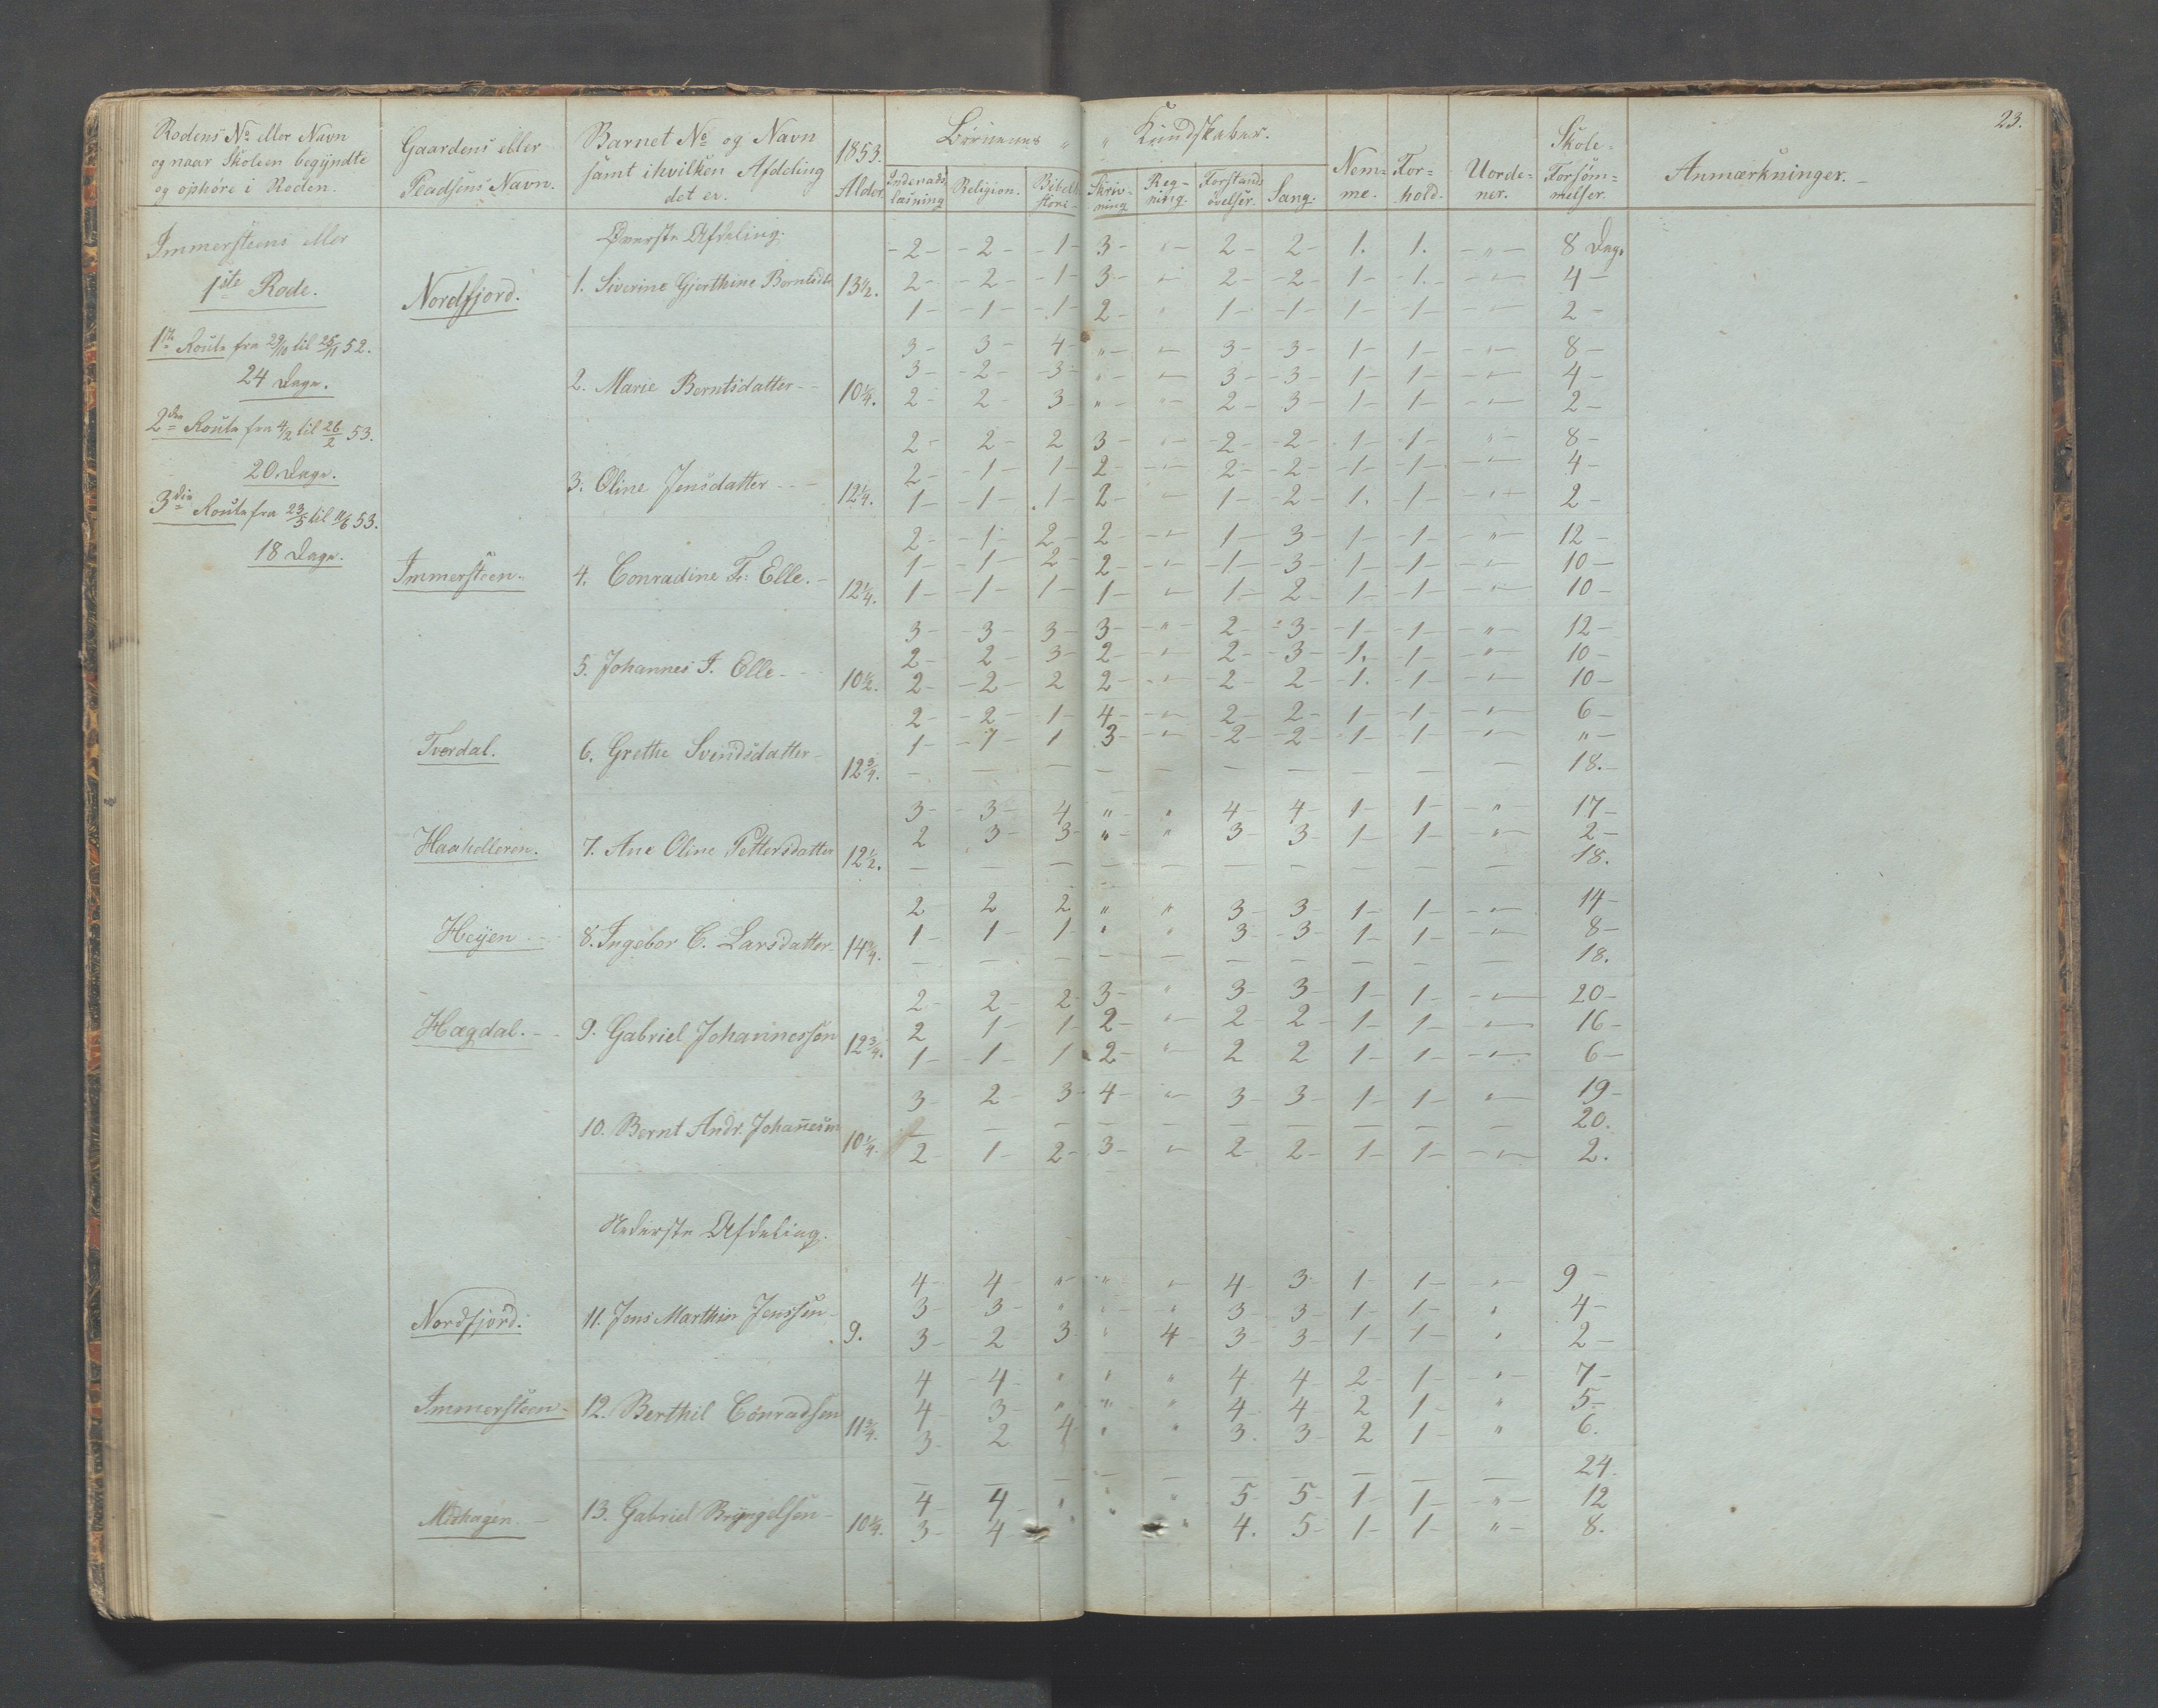 23.
Rodens No eller Navn og naar Skolen begyndte og ophøre i Roden. Gaardens eller Pladsens Navn. Barnet No og Navn samt i hvilken Afdeling det er. 1853. Alder. Børnenes " " Kundskaber. Indenads læsning Religion. Bibell storie Skrivning Regning. Forstands øvelser. Sang. Nemme. Forhold. Uordener. Skole-Forsømmelser. Anmærkninger.
Immersteens eller Øverste Afdeling. 2 - 2 - 1 - 3 - " - 2 - 2 - 1. 1. - " - 8 Dage
1ste Rode. Nordfjord. 1. Siverine Gjerthine Berntsdtr 13½. 2 - 2 - 1 - 3 - " - 2 - 2 - 1 - 1. - " - 4 -
1 - 1 - 1 - 2 - " 1 - 1 - 1 - 1 - " - 2 -
1ste Route fra 29/10 til 25/11 52. 3 - 3 - 4 - " - " - 3 - 3 - 1 - 1 - " - 8 -
24 Dage. 2. Marie Berntsdatter 10¼. 3 - 2 - 3 - " - " - 3 - 3 - 1 - 1 - " - 4 -
2 - 2 - 3 - " - " - 2 - 3 - 1 - 1 - " - 2 -
2den Route fra 4/2 til 26/2 53. 2 - 2 - 2 3 - " - 2 - 2 - 1 - 1 - " - 8 -
20 Dage. 2 - 1 - 1 - 2 - " - 2 - 2 - 1 - 1 - " - 4 -
3die Route fra 23/5 til 11/6 53. 3. Oline Jensdatter 12¼. 1 - 1 - 1 - 2 - " - 1 - 2 - 1. - 1 - " - 2 -
18 Dage. 2 - 1 - 2 - 2 - " - 1 - 3 - 1 - 1 - " - 12 -
Immersteen. 4. Conradine F: Elle. 12¼. 1 - 1 - 2 - 2 - " - 1 - 3 - 1 - 1 - " - 10 -
1 - 1 - 1 - 1 - " - 1 - 2 - 1 - 1 - " - 10 -
3 - 3 - 3 - 3 - " - 2 - 3 - 1 - 1 - " - 12 -
5. Johannes F. Elle 10½. 2 - 2 - 3 - 2 - " - 2 - 3 - 1. 1 - " - 10 -
2 - 2 - 2 2 - " - 2 - 2 - 1. - 1 - " - 10 -
2 - 2 - 1 - 4 - " - 2 - 2 - 1 - 1 - " - 6 -
Tverdal. 6. Grethe Svindsdatter 12¾. 1 - 1 - 1 3 - " - 2 - 2 - 1 - 1 - " - " -
- - - - - - - - - - 18. -
3 - 3 - 4 " - " 4 - 4 - 1 - 1 - " - 17 -
Haahelleren. 7. Ane Oline Pettersdatter 12½. 2 3 - 3 - " - " 3 - 3 - 1 - 1 - " - 2 -
- - - - - - - - - - 18.
2 2 2 " " 3 - 3 - 1 - 1 - " - 14 -
Heyen 8. Ingebor C. Larsdatter 14¾. 1 - 1 - 1 - " " 3 - 3 - 1 - 1 - " - 8 -
- - - - - - - - - - 18.
2 - 2 - 2 - 3 - " 3 - 3 - 1 - 1 - " - 20 -
Hægdal. 9. Gabriel Johannessøn 12¾. 2 1 - 1 - 2 - " - 2 - 2 - 1 - 1 - " - 16 -
1 - 1 - 1 2 - " - 2 2 1 - 1 - " - 6 -
3 - 2 - 3 - 4 - " - 3 - 3 - 1 - 1 - " - 19 -
10. Bernt Andr. Johannesen 10¼. - - - - - - - - - - 20.
2 - 1 - 2 - 3 - " - 2 - 2 - 1 - 1 - " - 2.
Nederste Afdeling.
4 - 4 - " - " - " - 4 - 3 - 1 - 1 - " 9 -
Nordfjord. 11. Jens Marthin Jenssøn 9. 3 - 3 - " " " 3 - 3 - 1 - 1 - " 4 -
3 - 2 3 " 4 - 3 - 3 - 1 - 1 - " 2 -
4 - 4 - " " " 4 - 4 - 2 - 1 - " - 7 -
Immersteen 12. Berthil Conradsen 11¾. 4 - 3 - " " " 4 - 4 2 1 - " 5 -
3 - 2 4 " " 3. 3 - 2 1 - " 6.
- - - - - - - - - - 24.
Midhagen. 13. Gabriel Bryngelsen 10¼. 4 - 4 - " " " 5 - 5 - 1 - 1 - " - 12
3 - 4 " 4. 5 - 1 - 1 - " - 8.